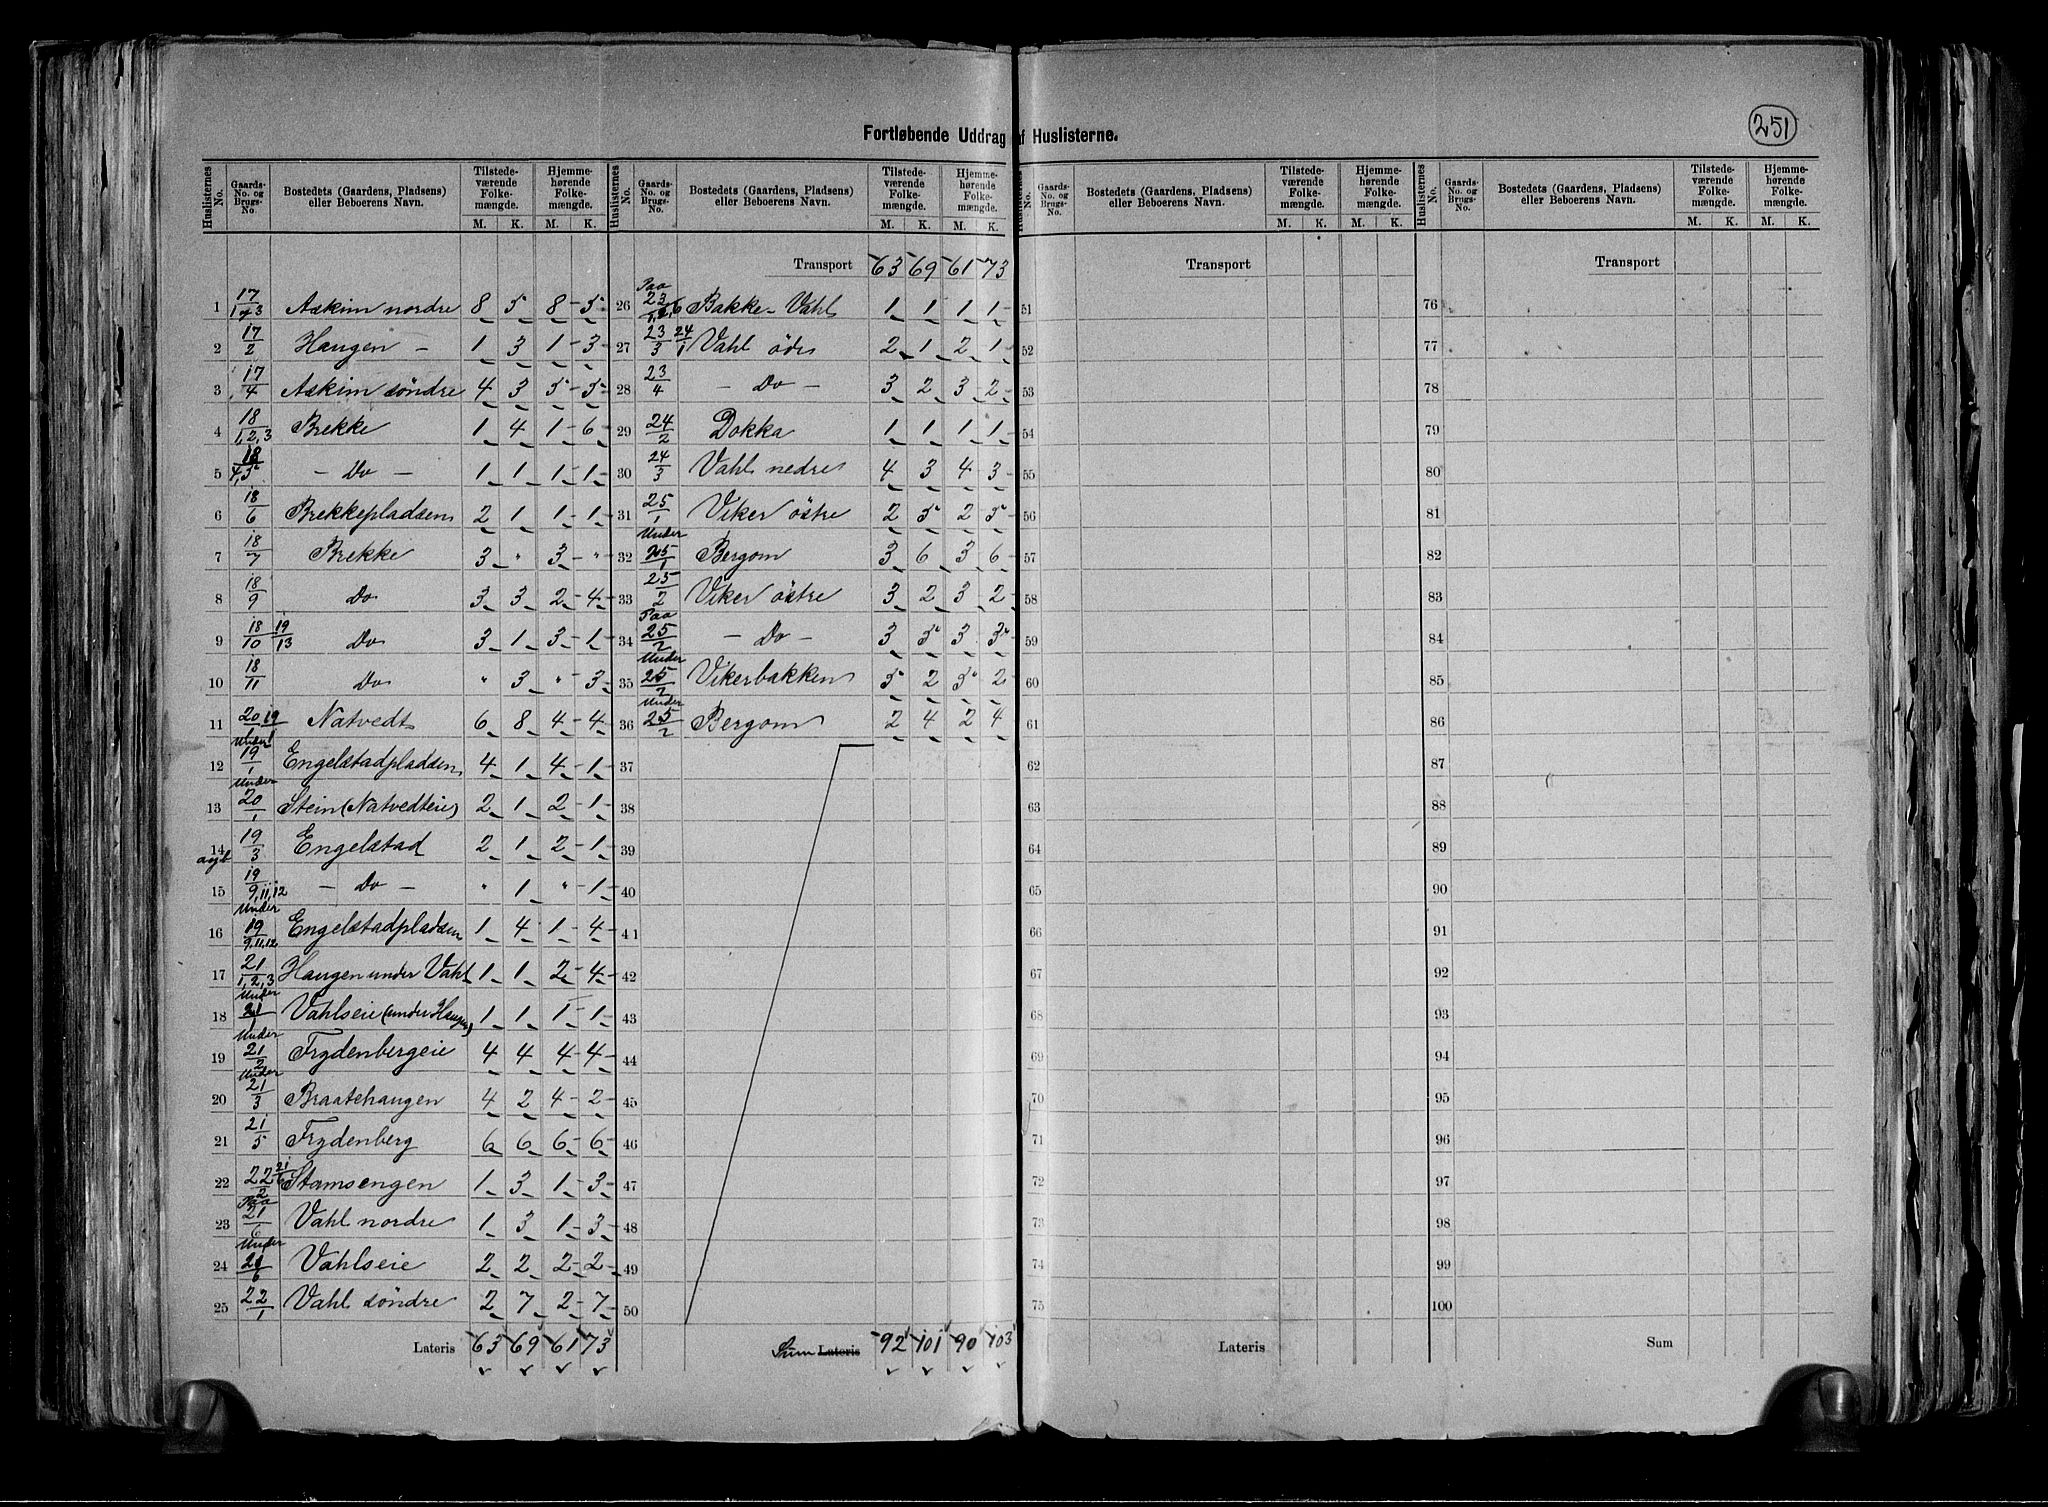 251
Fortløbende Uddrag af Huslisterne.
Huslisternes No. | Gaards-No. og Brugs-No. | Bostedets (Gaardens, Pladsens) eller Beboerens Navn. | Tilstedeværende Folkemængde. M. K. | Hjemmehørende Folkemængde. M. K.
1 17/1,3 Askim nordre 8 5 8 5
2 17/2 Haugen – 1 3 1 3
3 17/4 Askim søndre 4 3 5 5
4 18/1,2,3 Brekke 1 4 1 6
5 18/4,5 – Do – 1 1 1 1
6 18/6 Brekkepladsen 2 1 1 1
7 18/7 Brekke 3 " 3 "
8 18/9 Do 3 3 2 4
9 18/10 19/13 Do 3 1 3 1
10 18/11 Do " 3 " 3
11 20/1 19 Natvedt 6 8 4 4
12 Under 19/1 Engelstadpladsen 4 1 4 1
13 Under 20/1 Stein (Natvedteie) 2 1 2 1
14 19/3 Engelstad 2 1 2 1
15 19/9,11,12 – Do – " 1 " 1
16 Under 19/9,11,12 Engelstadpladsen 1 4 1 4
17 21/1,2,3 Haugen under Vahl 1 1 2 4
18 Under 21/1 Vahlseie (under Haugen) 1 1 1 1
19 Under 21/2 Frydenbergeie 4 4 4 4
20 Under 21/3 Braatehaugen 4 2 4 2
21 21/5 Frydenberg 6 6 6 6
22 22/2 21/6 Stamsengen 1 3 1 3
23 Paa 21/6 Vahl nordre 1 3 1 3
24 Under 21/6 Vahlseie 2 2 2 2
25 22/1 Vahl søndre 2 7 2 7
Lateris 63 69 61 73
Huslisternes No. | Gaards-No. og Brugs-No. | Bostedets (Gaardens, Pladsens) eller Beboerens Navn. | Tilstedeværende Folkemængde. M. K. | Hjemmehørende Folkemængde. M. K.
Transport 63 69 61 73
26 Paa 23/1,2,6 Bakke-Vahl 1 1 1 1
27 23/3 24/1 Vahl øde 2 1 2 1
28 23/4 – Do – 3 2 3 2
29 24/2 Dokka 1 1 1 1
30 24/3 Vahl nedre 4 3 4 3
31 25/1 Viker östre 2 5 2 5
32 Under 25/1 Bergom 3 6 3 6
33 25/2 Viker östre 3 2 3 2
34 Paa 25/2 – Do – 3 5 3 3
35 Under 25/2 Vikerbakken 5 2 5 2
36 Under 25/2 Bergom 2 4 2 4
37
38
39
40
41
42
43
44
45
46
47
48
49
50
Sum Lateris 92 101 90 103
Huslisternes No. | Gaards-No. og Brugs-No. | Bostedets (Gaardens, Pladsens) eller Beboerens Navn. | Tilstedeværende Folkemængde. M. K. | Hjemmehørende Folkemængde. M. K.
Transport
51
52
53
54
55
56
57
58
59
60
61
62
63
64
65
66
67
68
69
70
71
72
73
74
75
Lateris
Huslisternes No. | Gaards-No. og Brugs-No. | Bostedets (Gaardens, Pladsens) eller Beboerens Navn. | Tilstedeværende Folkemængde. M. K. | Hjemmehørende Folkemængde. M. K.
Transport
76
77
78
79
80
81
82
83
84
85
86
87
88
89
90
91
92
93
94
95
96
97
98
99
100
Sum